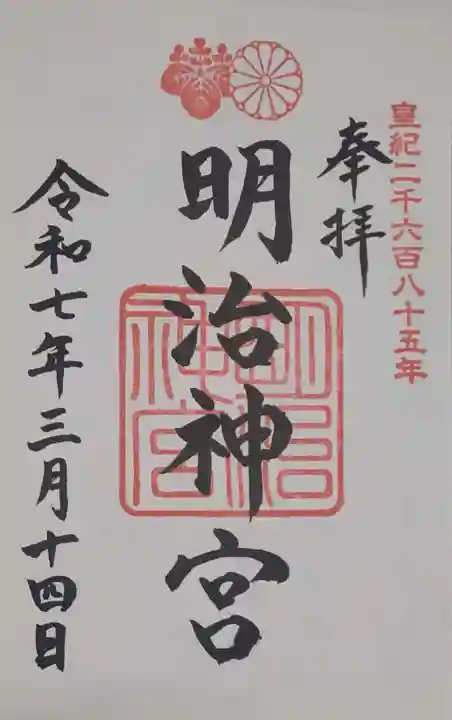 皇紀二千六百八十五年
奉拝
明治神宮
明治神宮
令和七年三月十四日